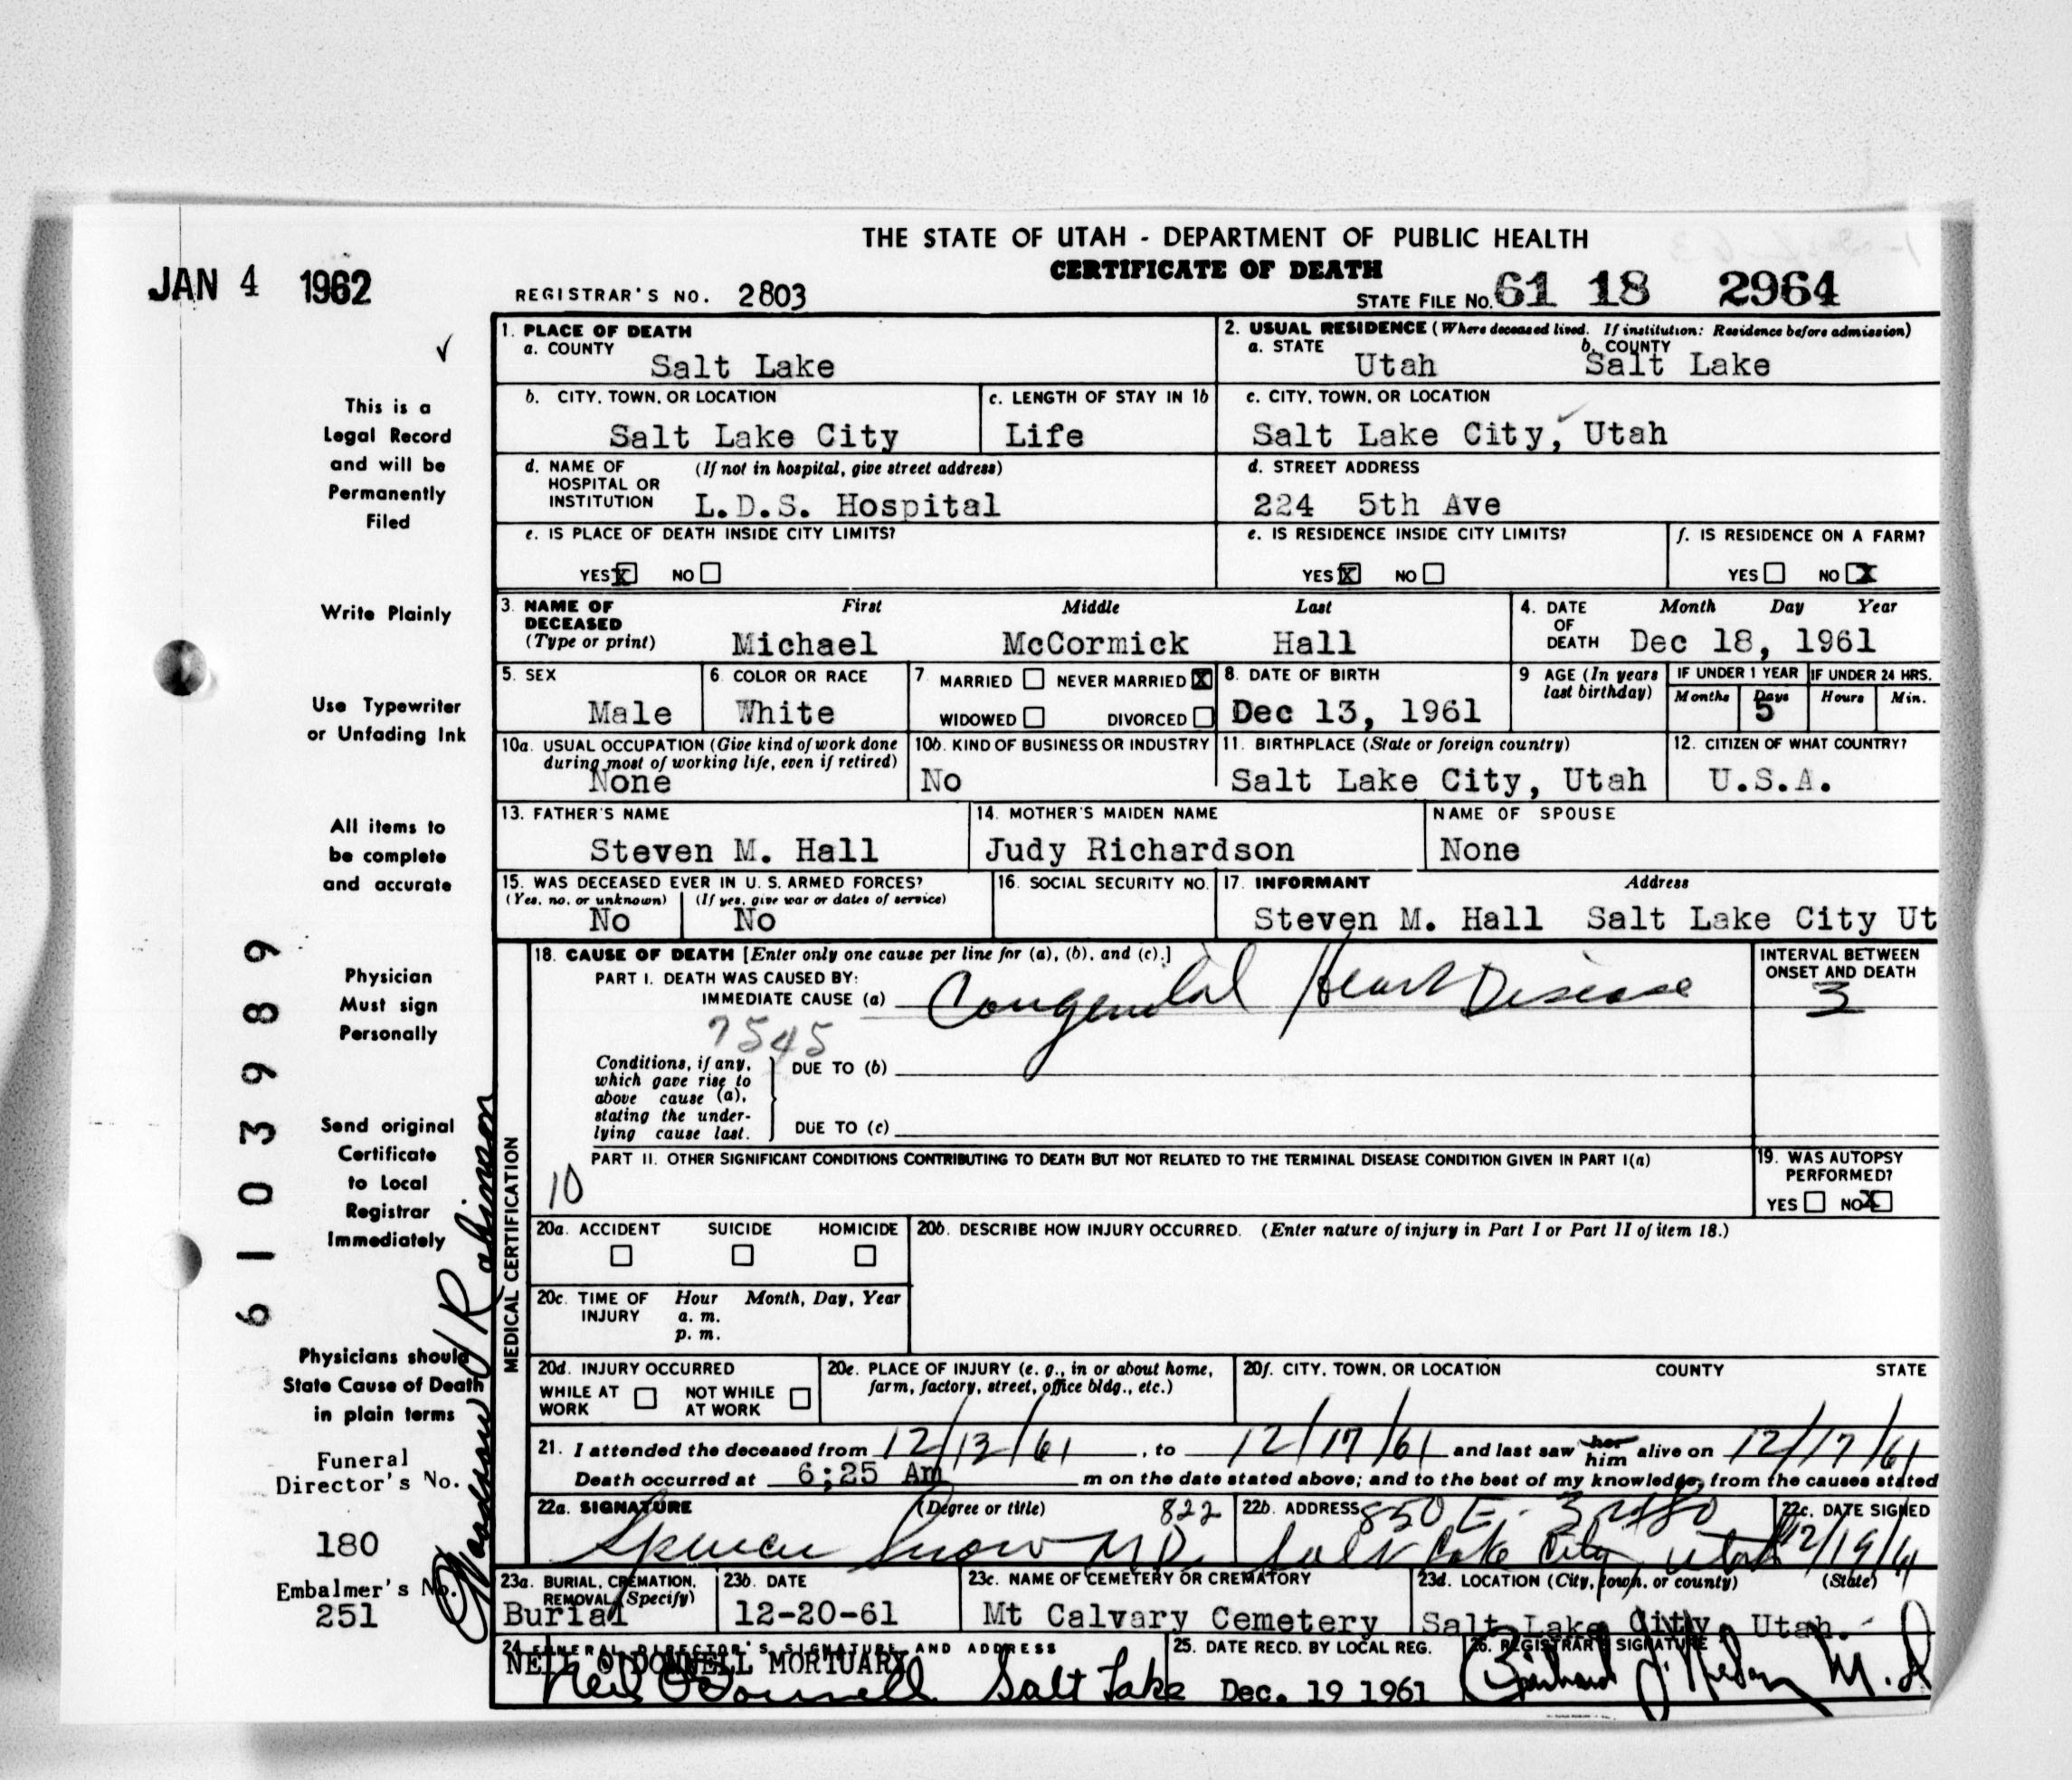 THE STATE OF UTAH - DEPARTMENT OF PUBLIC HEALTH
CERTIFICATE OF DEATH
JAN 4 1962
REGISTRAR'S NO. 2803
STATE FILE No. 61 18 2964
1. PLACE OF DEATH
a. COUNTY
Salt Lake
2. USUAL RESIDENCE (Where deceased lived. If institution: Residence before admission)
a. STATE Utah
b. COUNTY Salt Lake
b. CITY, TOWN, OR LOCATION
Salt Lake City
c. LENGTH OF STAY IN 1b
Life
c. CITY, TOWN, OR LOCATION
Salt Lake City, Utah
d. NAME OF HOSPITAL OR INSTITUTION (If not in hospital, give street address)
L.D.S. Hospital
d. STREET ADDRESS
224 5th Ave
e. IS PLACE OF DEATH INSIDE CITY LIMITS?
YES X NO
e. IS RESIDENCE INSIDE CITY LIMITS?
YES X NO
f. IS RESIDENCE ON A FARM?
YES NO X
3. NAME OF DECEASED (Type or print)
First Middle Last
Michael McCormick Hall
4. DATE OF DEATH
Month Day Year
Dec 18, 1961
5. SEX
Male
6. COLOR OR RACE
White
7. MARRIED NEVER MARRIED X
WIDOWED DIVORCED
8. DATE OF BIRTH
Dec 13, 1961
9 AGE (In years last birthday)
IF UNDER 1 YEAR
Months Days
5
IF UNDER 24 HRS.
Hours Min.
10a. USUAL OCCUPATION (Give kind of work done during most of working life, even if retired)
None
10b. KIND OF BUSINESS OR INDUSTRY
No
11. BIRTHPLACE (State or foreign country)
Salt Lake City, Utah
12. CITIZEN OF WHAT COUNTRY?
U.S.A.
13. FATHER'S NAME
Steven M. Hall
14. MOTHER'S MAIDEN NAME
Judy Richardson
NAME OF SPOUSE
None
15. WAS DECEASED EVER IN U. S. ARMED FORCES?
(Yes, no, or unknown) (If yes, give war or dates of service)
No No
16. SOCIAL SECURITY NO.
17. INFORMANT Address
Steven M. Hall Salt Lake City Ut
18. CAUSE OF DEATH [Enter only one cause per line for (a), (b), and (c).]
PART I. DEATH WAS CAUSED BY:
IMMEDIATE CAUSE (a) Congenital Heart Disease
7545
Conditions, if any, which gave rise to above cause (a), stating the underlying cause last.
DUE TO (b)
DUE TO (c)
INTERVAL BETWEEN ONSET AND DEATH
3
PART II. OTHER SIGNIFICANT CONDITIONS CONTRIBUTING TO DEATH BUT NOT RELATED TO THE TERMINAL DISEASE CONDITION GIVEN IN PART I(a)
10
19. WAS AUTOPSY PERFORMED?
YES NO X
20a. ACCIDENT SUICIDE HOMICIDE
20b. DESCRIBE HOW INJURY OCCURRED. (Enter nature of injury in Part I or Part II of item 18.)
20c. TIME OF INJURY
Hour Month, Day, Year
a. m.
p. m.
20d. INJURY OCCURRED
WHILE AT WORK NOT WHILE AT WORK
20e. PLACE OF INJURY (e. g., in or about home, farm, factory, street, office bldg., etc.)
20f. CITY, TOWN, OR LOCATION COUNTY STATE
21. I attended the deceased from 12/13/61, to 12/17/61 and last saw her him alive on 12/17/61
Death occurred at 6:25 Am m on the date stated above; and to the best of my knowledge, from the causes stated
22a. SIGNATURE (Degree or title) 822
Spencer Snow M D.
22b. ADDRESS 850 E.
Salt Lake City Utah
22c. DATE SIGNED
12/19/61
23a. BURIAL, CREMATION, REMOVAL (Specify)
Burial
23b. DATE
12-20-61
23c. NAME OF CEMETERY OR CREMATORY
Mt Calvary Cemetery
23d. LOCATION (City, town, or county) (State)
Salt Lake City, Utah.
24 FUNERAL DIRECTOR'S SIGNATURE AND ADDRESS
NEIL O'DONNELL MORTUARY
Neil O'Donnell Salt Lake
25. DATE RECD. BY LOCAL REG.
Dec. 19 1961
26. REGISTRAR'S SIGNATURE
M. D
MEDICAL CERTIFICATION
This is a
Legal Record
and will be
Permanently
Filed
Write Plainly
Use Typewriter
or Unfading Ink
All items to
be complete
and accurate
Physician
Must sign
Personally
Send original
Certificate
to Local
Registrar
Immediately
Physicians should
State Cause of Death
in plain terms
Funeral
Director's No.
180
Embalmer's No.
251
6103989